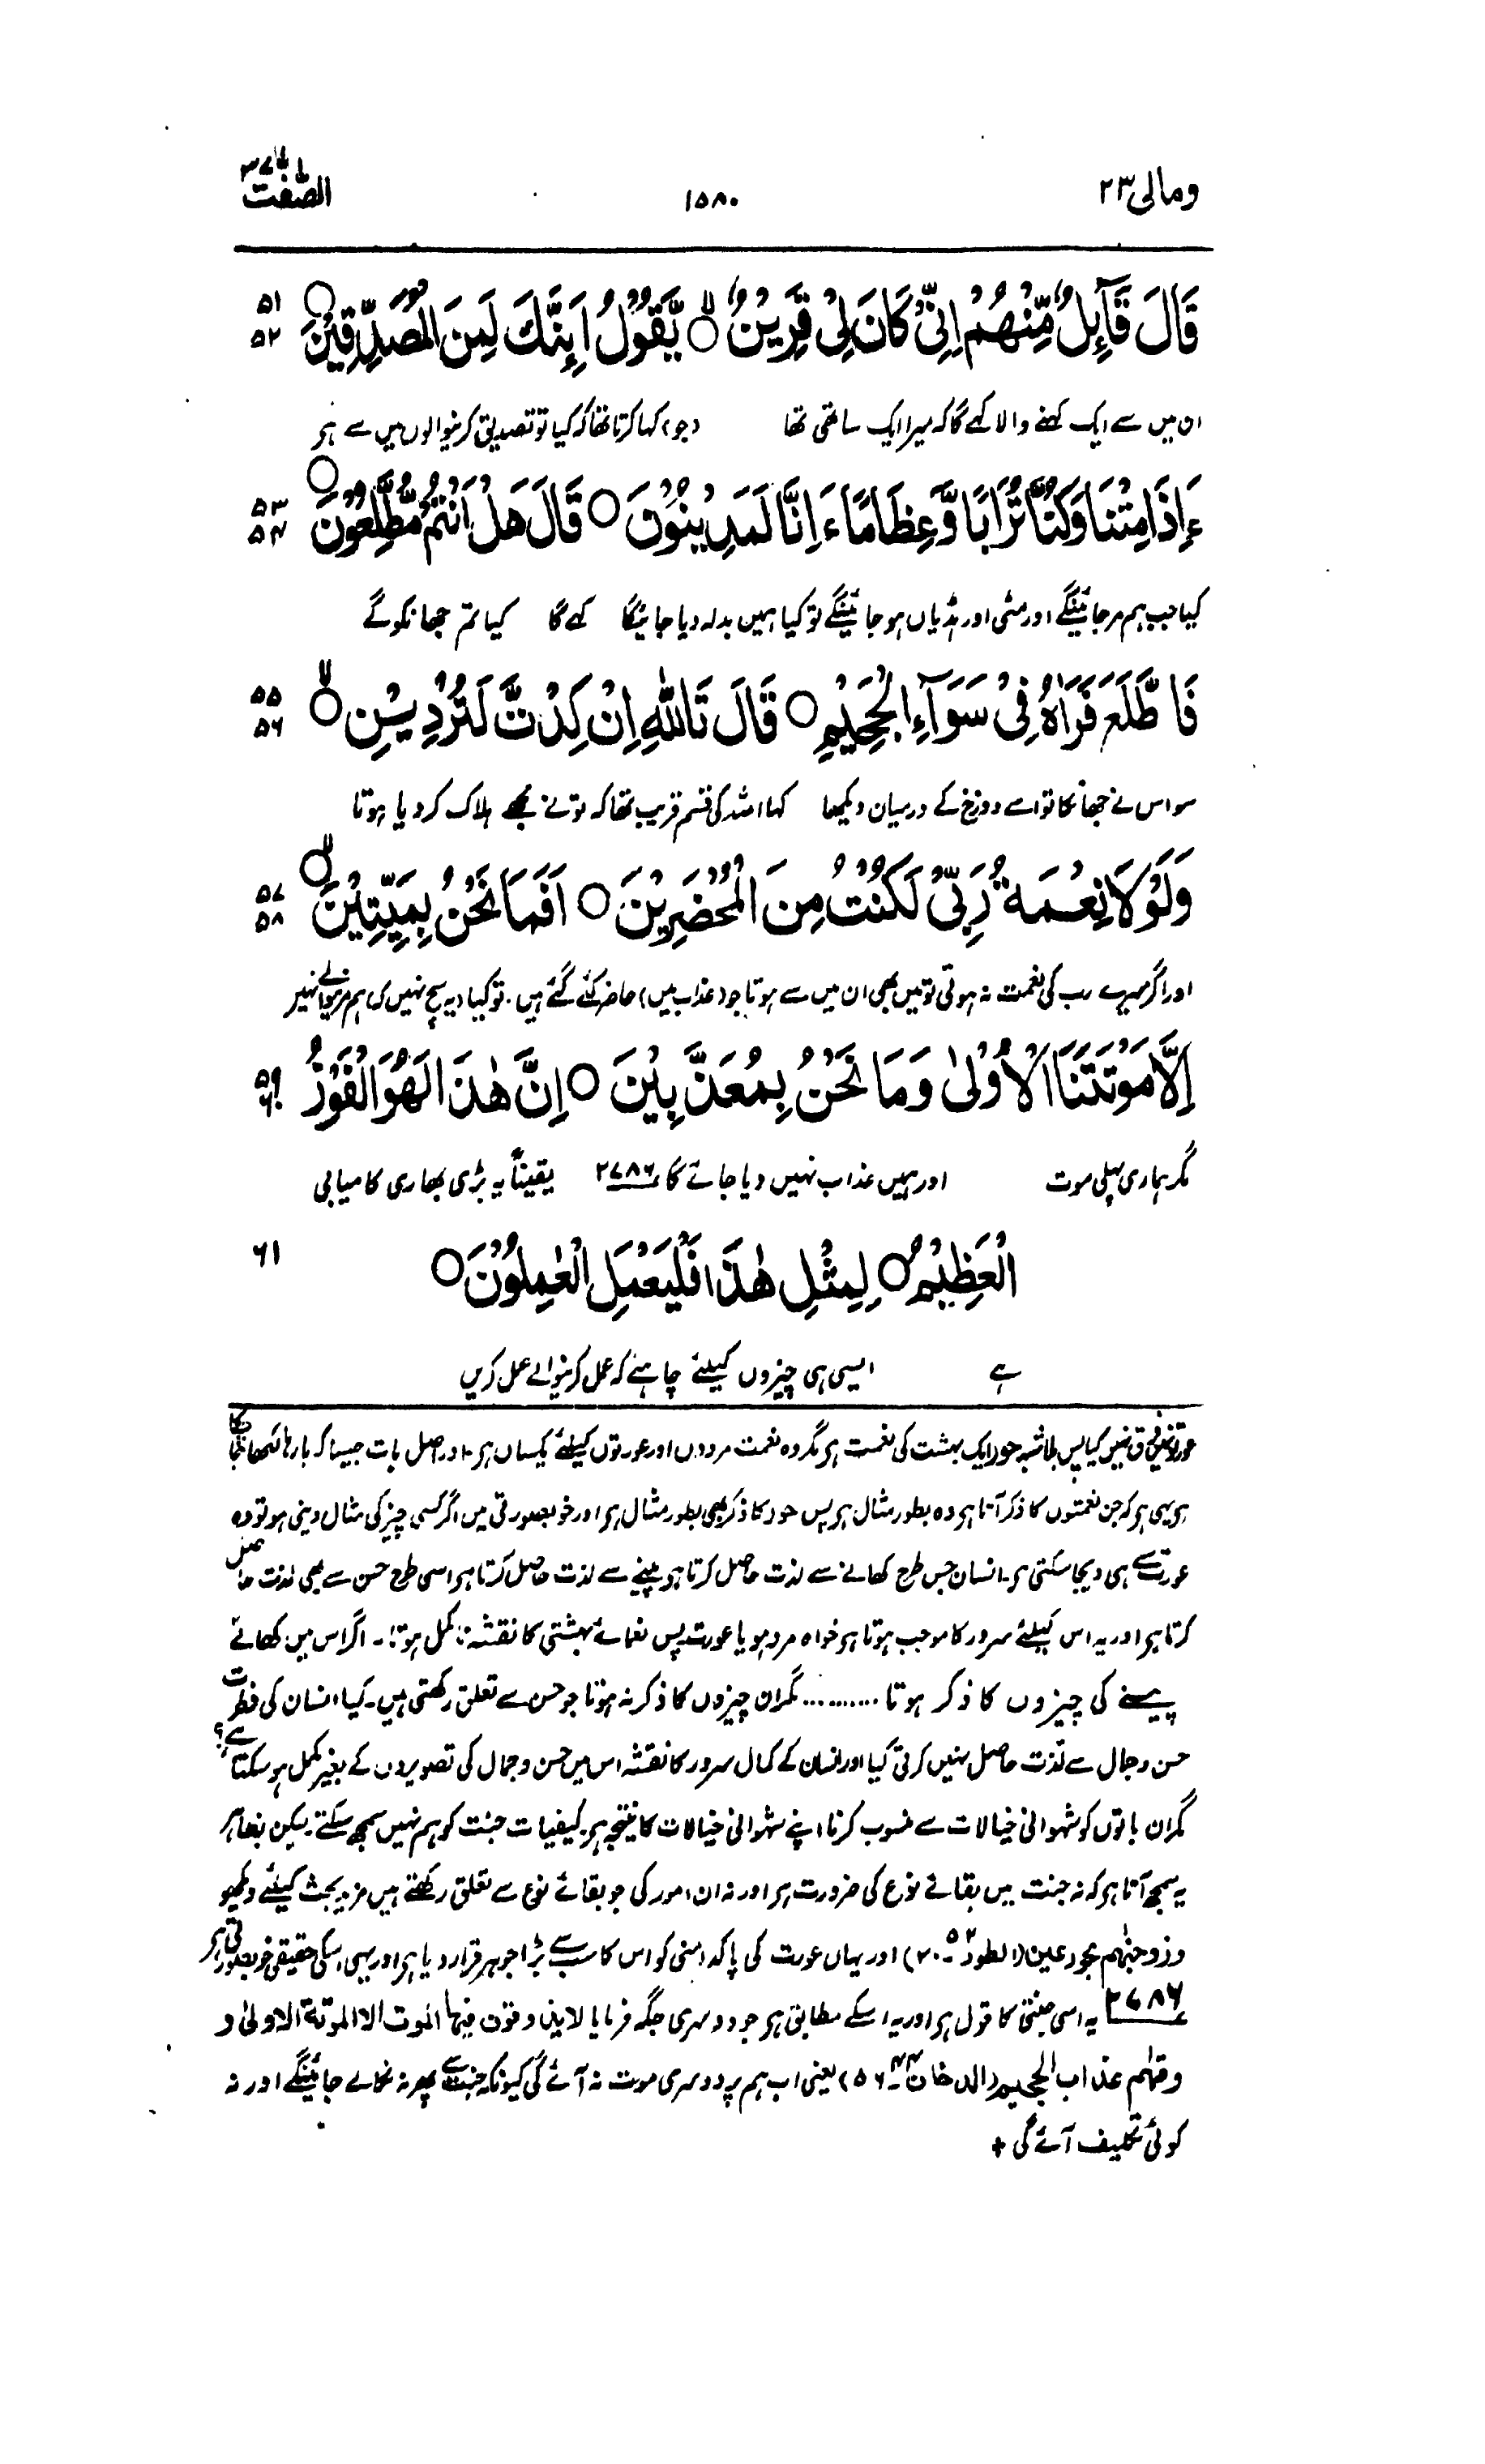 ومالی ۲۳
۱۵۸۰
الصّٰفٰت ۳۷
قَالَ قَآئِلٌ مِّنْهُمْ اِنِّیْ كَانَ لِیْ قَرِیْنٌ ○ یَّقُوْلُ اَئِنَّكَ لَمِنَ الْمُصَدِّقِیْنَ ○
۵۱
۵۲
ان میں سے ایک کہنے والا کہے گا کہ میرا ایک ساتھی تھا (جو) کہا کرتا تھا کہ کیا تو تصدیق کرنیوالوں میں سے ہر
ءَاِذَا مِتْنَا وَكُنَّا تُرَابًا وَّعِظَامًا ءَاِنَّا لَمَدِیْنُوْنَ ○ قَالَ هَلْ اَنْتُمْ مُّطَّلِعُوْنَ ○
۵۳
۵۴
کیا جب ہم مر جائینگے اور مٹی اور ہڈیاں ہو جائینگے تو کیا ہمیں بدلہ دیا جائیگا کہے گا کیا تم جھانکو گے
فَاطَّلَعَ فَرَاٰهُ فِیْ سَوَآءِ الْجَحِیْمِ ○ قَالَ تَاللّٰهِ اِنْ كِدْتَّ لَتُرْدِیْنِ ○
۵۵
۵۶
سو اس نے جھانکا تو اسے دوزخ کے درمیان دیکھا کہا اللہ کی قسم قریب تھا کہ تو نے مجھے ہلاک کر دیا ہوتا
وَلَوْلَا نِعْمَةُ رَبِّیْ لَكُنْتُ مِنَ الْمُحْضَرِیْنَ ○ اَفَمَا نَحْنُ بِمَیِّتِیْنَ ○
۵۷
۵۸
اور اگر میرے رب کی نعمت نہ ہوتی تو میں بھی ان میں سے ہوتا جو (عذاب میں) حاضر کئے گئے ہیں۔ تو کیا (یہ سچ نہیں کہ) ہم مرنیوالے نہیں
اِلَّا مَوْتَتَنَا الْاُوْلٰی وَمَا نَحْنُ بِمُعَذَّبِیْنَ ○ اِنَّ هٰذَا لَهُوَ الْفَوْزُ
۵۹
۶۰
مگر ہماری پہلی موت اور ہمیں عذاب نہیں دیا جائے گا ۲۷۸۶ یقیناً یہ بڑی بھاری کامیابی
الْعَظِیْمُ ○ لِمِثْلِ هٰذَا فَلْیَعْمَلِ الْعٰمِلُوْنَ ○
۶۱
ہے ایسی ہی چیزوں کیلئے چاہئے کہ عمل کرنیوالے عمل کریں
فرق نہیں کیا پس بلاشبہ حور ایک بہشت کی نعمت ہر مگر وہ نعمت مردوں اور عورتوں کیلئے یکساں ہر۔ اور اصل بات جیسا کہ بارہا لکھا جا چکا
ہر یہی ہر کہ جن نعمتوں کا ذکر آتا ہر وہ بطور مثال ہر پس حور کا ذکر بھی بطور مثال ہر اور خوبصورتی میں اگر کسی چیز کی مثال دینی ہو تو وہ
عورت سے ہی دیجا سکتی ہر۔ انسان جس طرح کھانے سے لذت حاصل کرتا ہر پینے سے لذت حاصل کرتا ہر اسی طرح حسن سے بھی لذت حاصل
کرتا ہر اور یہ اس کیلئے سرور کا موجب ہوتا ہر خواہ مرد ہو یا عورت۔ پس نعمائے بہشتی کا نقشہ نامکمل ہوتا۔ اگر اس میں کھانے
پینے کی چیزوں کا ذکر ہوتا .......... مگر ان چیزوں کا ذکر نہ ہوتا جو حسن سے تعلق رکھتی ہیں۔ کیا انسان کی فطرت
حسن و جمال سے لذت حاصل نہیں کرتی کیا اور انسان کے کمال سرور کا نقشہ اس میں حسن و جمال کی تصویروں کے بغیر مکمل ہو سکتا ہے؟
مگر ان باتوں کو شہوانی خیالات سے منسوب کرنا اپنے شہوانی خیالات کا نتیجہ ہر۔ کیفیات جنت کو ہم نہیں سمجھ سکتے۔ لیکن بظاہر
یہ سمجھ آتا ہر کہ نہ جنت میں بقائے نوع کی ضرورت ہر اور نہ ان امور کی جو بقائے نوع سے تعلق رکھتے ہیں مزید بحث کیلئے دیکھو
وزوجنٰهم بحور عین (الطور ۵۲-۲۰) اور یہاں عورت کی پاکدامنی کو اس کا سب سے بڑا جوہر قرار دیا ہر اور یہی اسکی حقیقی خوبصورتی ہر
۲۷۸۶ یہ اسی جنتی کا قول ہر اور یہ اسکے مطابق ہر جو دوسری جگہ فرمایا لا یذوقون فیها الموت الا الموتة الاولیٰ و
وقٰهم عذاب الجحیم (الدخان ۴۴-۵۶) یعنی اب ہم پر دوسری موت نہ آئے گی کیونکہ جنت سے پھر نہ نکالے جائینگے اور نہ
کوئی تکلیف آئے گی +